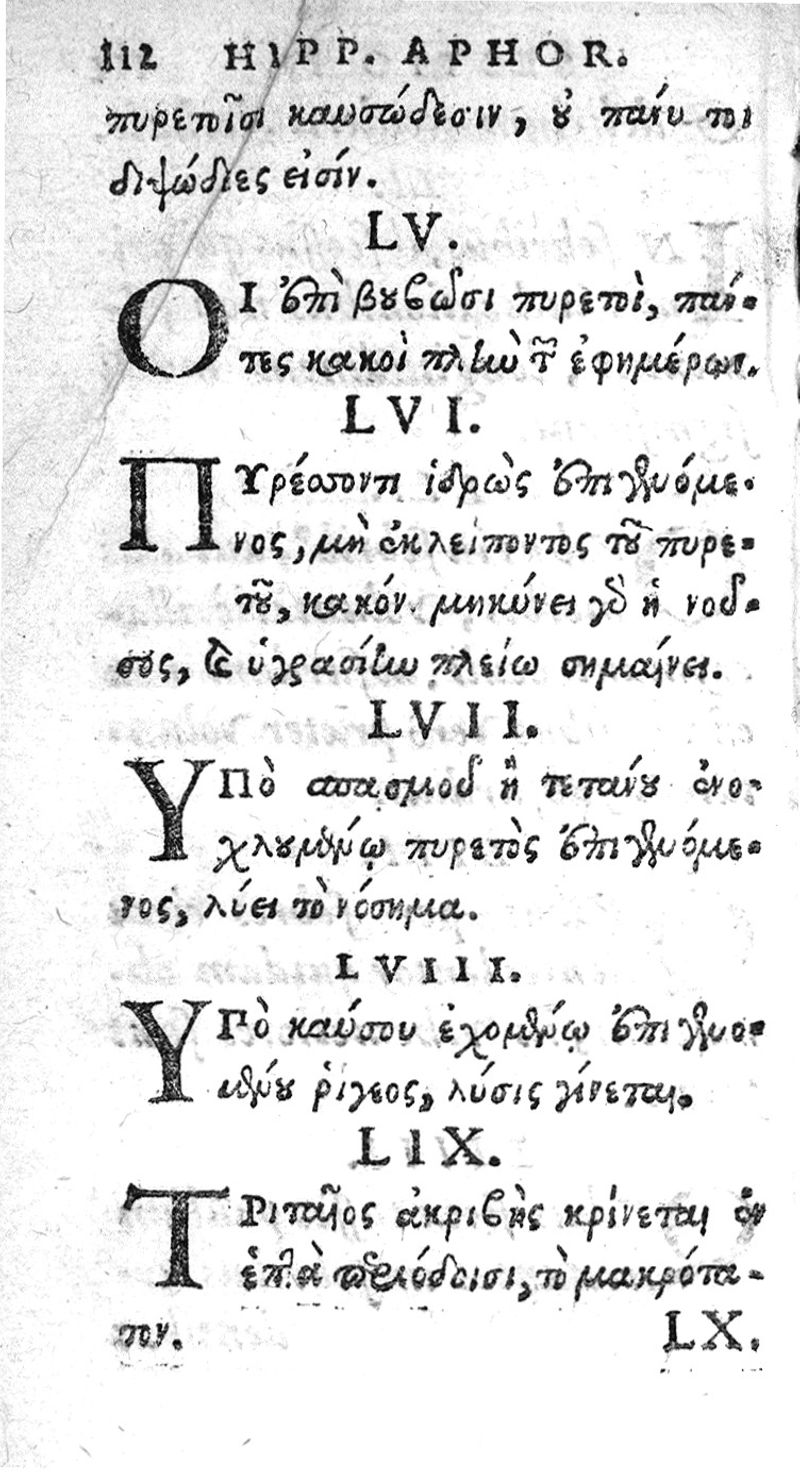 112 HIPP. APHOR.
πυρετοῖσι καυσώδεσιν, ȣ̓ πάνυ τοι
διψώδιες εἰσίν.
LV.
ΟΙ ἐπὶ βȣβῶσι πυρετοὶ, πάν-
τες κακοὶ πλὶω τ͂ ἐφημέρων.
LVI.
ΠΥρέσσοντι ἱδρὼς ἐπιγενόμε-
νος, μὴ ἐκλείποντος τοῦ πυρε-
τοῦ, κακόν. μηκύνει γὸ ἡ νοῦ-
σος, ϗ ὑγρασίην πλείω σημαίνει.
LVII.
ΥΠὸ σπασμοῦ ἢ τετάνȣ ἐνο-
χλȣμένῳ πυρετὸς ἐπιγενόμε-
νος, λύει τὸ νόσημα.
LVIII.
ΥΠὸ καύσου ἐχομένῳ ἐπιγενο-
μένȣ ῥίγεος, λύσις γίνεται.
LIX.
ΤΡιταῖος ἀκριβὴς κρίνεται ἐν
ἑπτὰ περιόδοισι, τὸ μακρότα-
τον. LX.